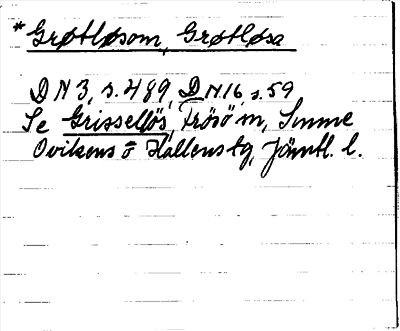 *Grøtløsom, Grøtløsa
DN3, s. 489, DN16, s. 59
Se Grisselfös, Frösö m, Sunne
Ovikens o Hallens tg, Jämtl. l.